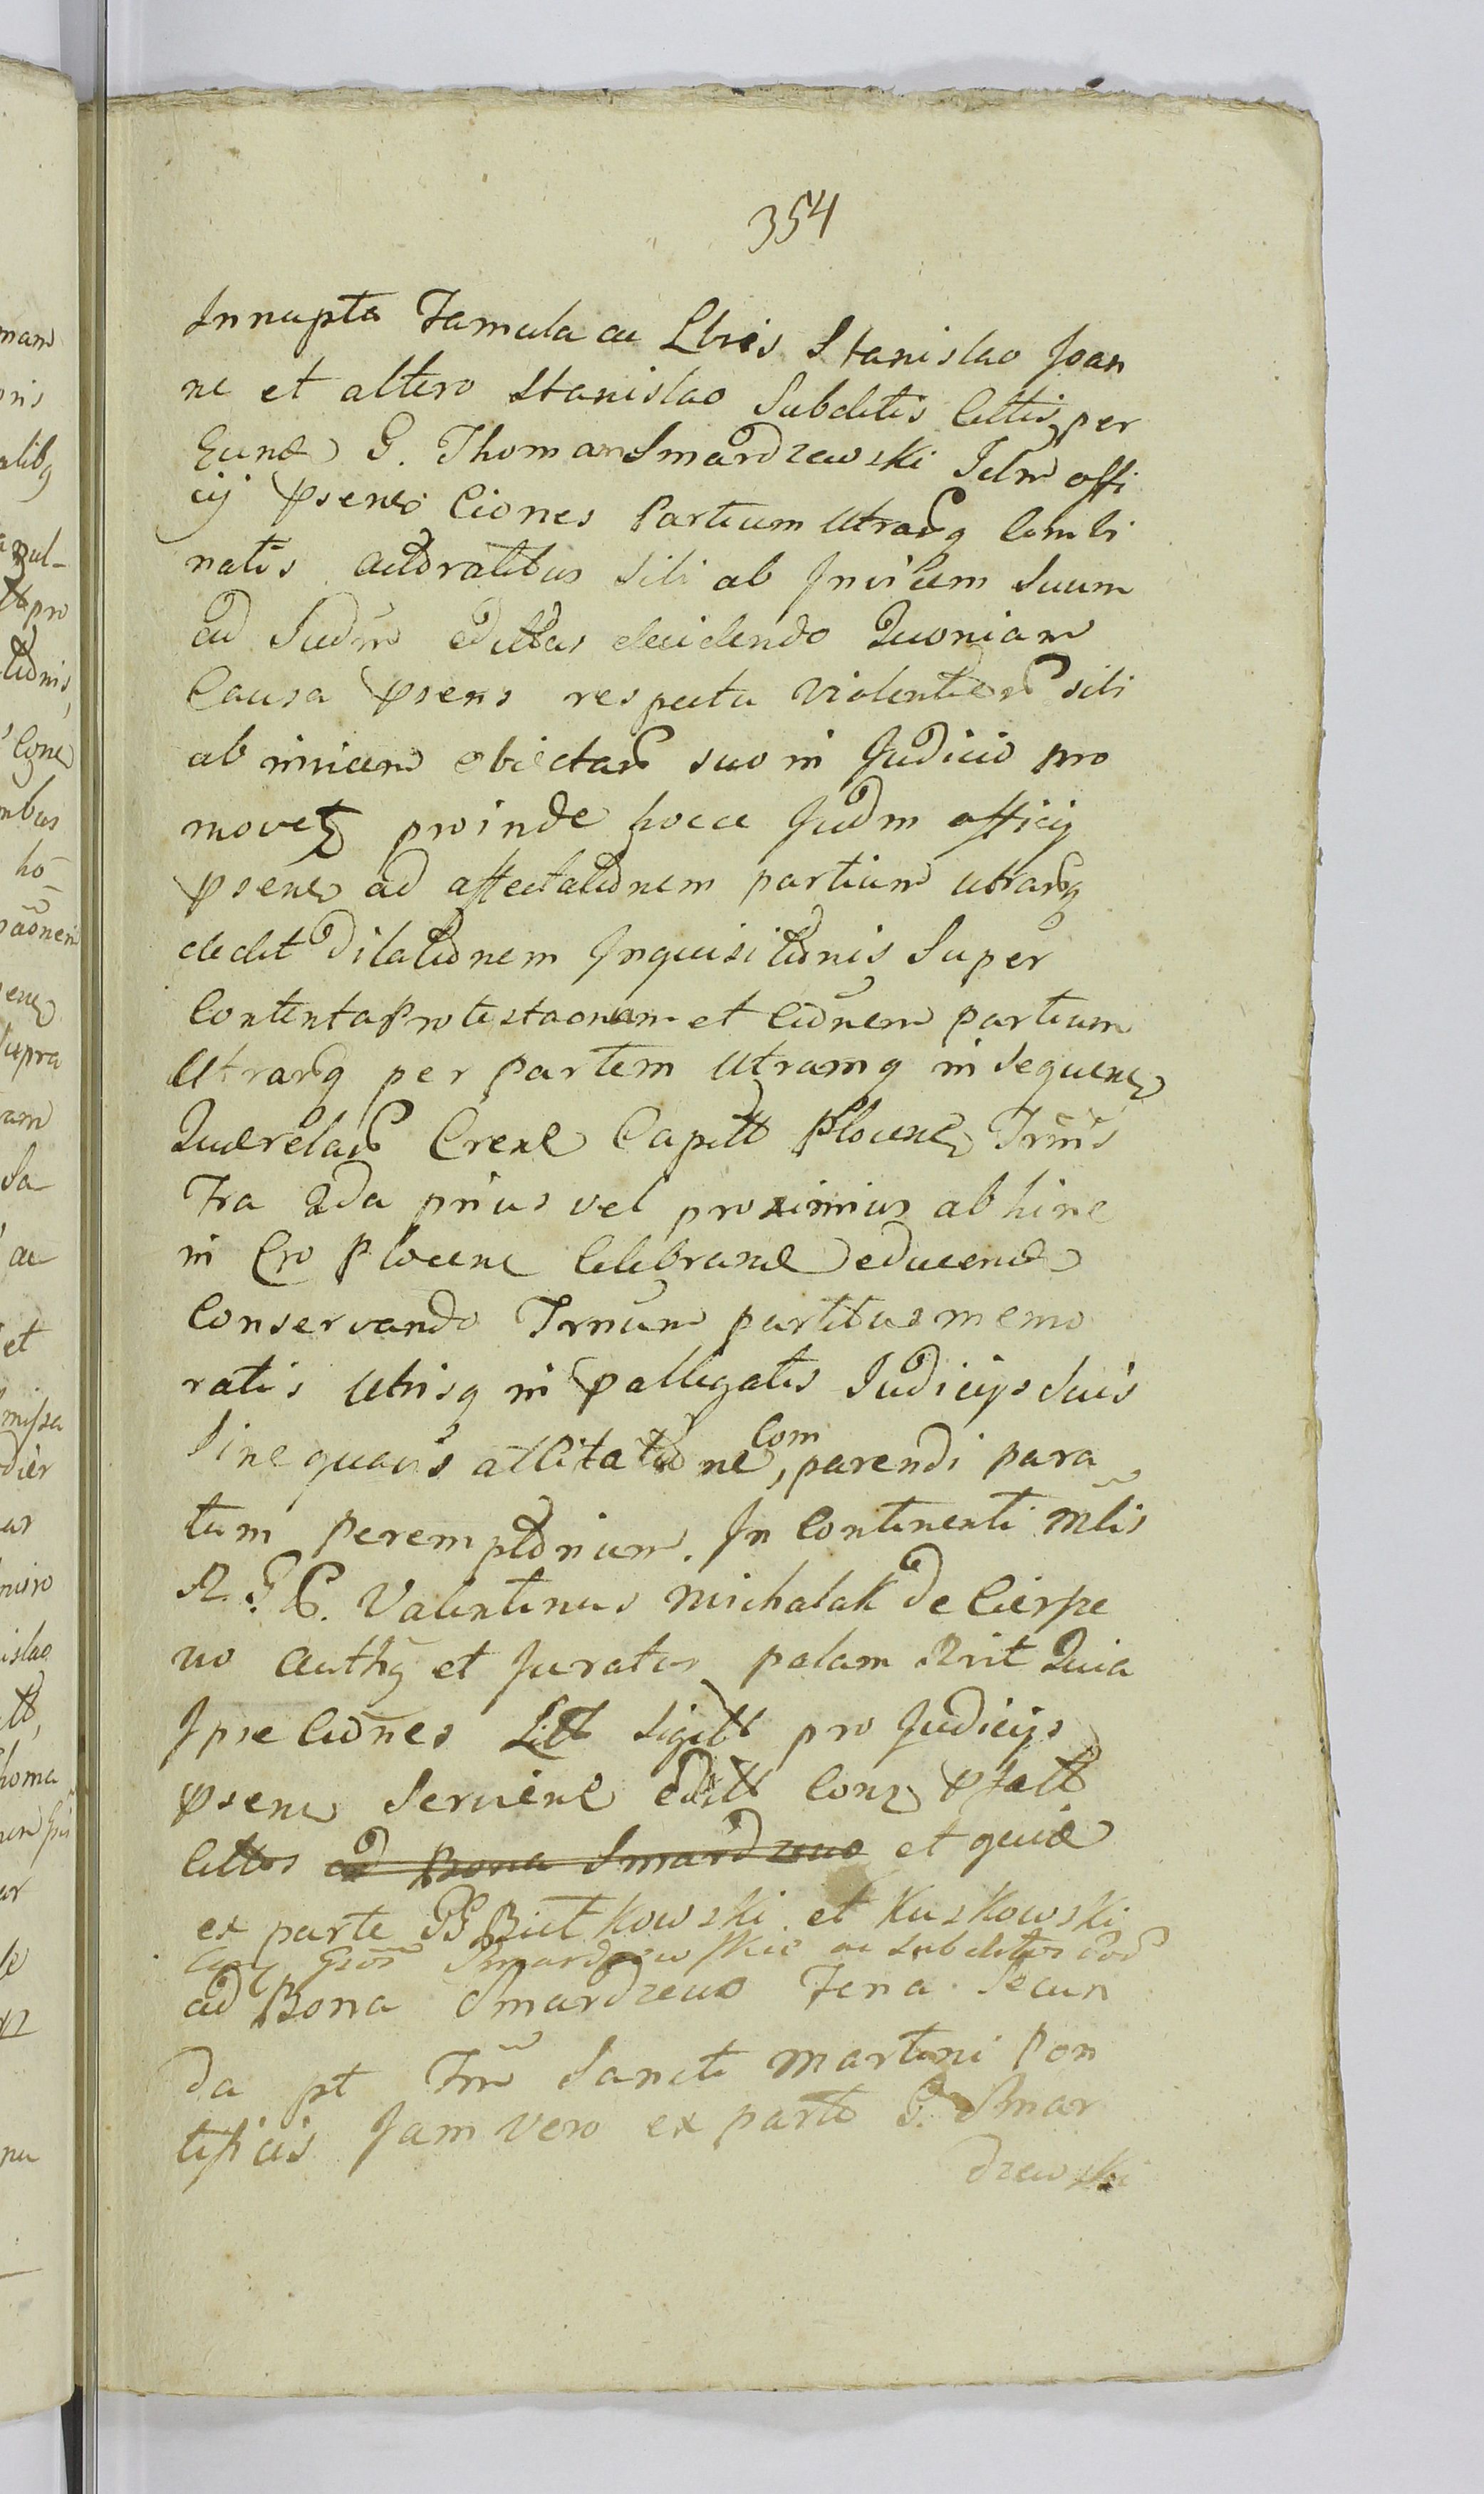 354
Innupta Famula ac Lbris Stanislao Joan
ne et altero Stanislao Subditis Cittis per
Eund G. Thomam Smardzewski Judm offi
cij psens Ciones Partium Utrarq Combi
natis actoratibus sibi ab Invicem Suum
ad Judm editas decidendo Quoniam
Causa psens respectu violentiar sibi
ab invicem obiectar suo in Judicio pro
movet proinde hocce Judm officij
psens ad affectationem partium utrarq
dedit Dilationem Inquisitionis Super
Contenta Protestaonum et Citonem partium
Utrarq per partem Utramq in sequen
Querelar Cren Capitt Plocen Trmis
Fra 2da prius vel proximius ab hinc
in Cro Plocen Celebrand Deducend
Conservando Trnum partibus memo
ratis Utrisq in pallegatis Judicijs suis
Sine quavis attitatione, Com parendi para
tum peremptorium. In Continenti Mtis
R. G. P. Valentinus Michalak de Cierpe
wo Authq et Juratus palam Rvit Quia
Ipse Citones Litt sigill pro Judicijs
psen Servien editt Con pfatt
Cittos ad Bona Smardzewo et quid
ex parte GG Bietkowski et Kuskowski
Con Gros Smardzewskie ac subditos Eor
ad Bona Smardzewo Feria Secun
da pt Fm Sancti Martini Pon
tificis Jam vero ex parte G. Smar
dzewski